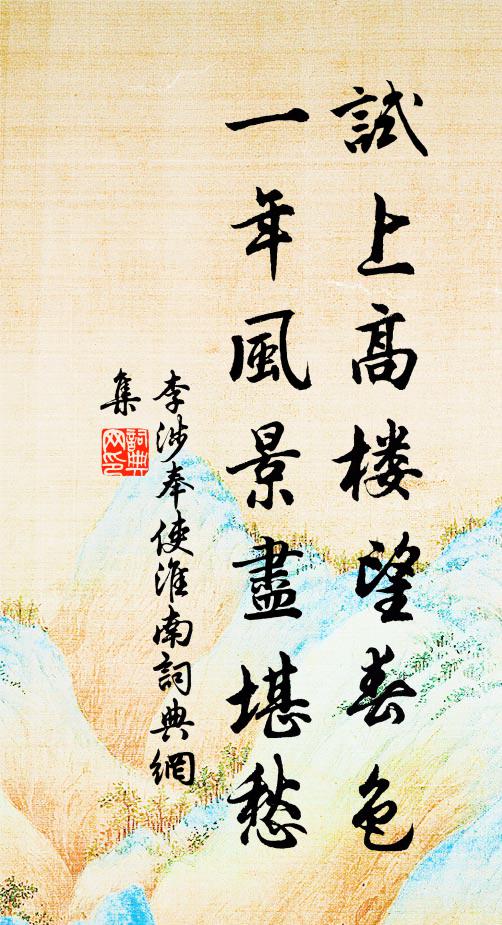 試上高楼望春色
一年風景盡堪愁
李涉奉使淮南詞典網
集
詞典網印